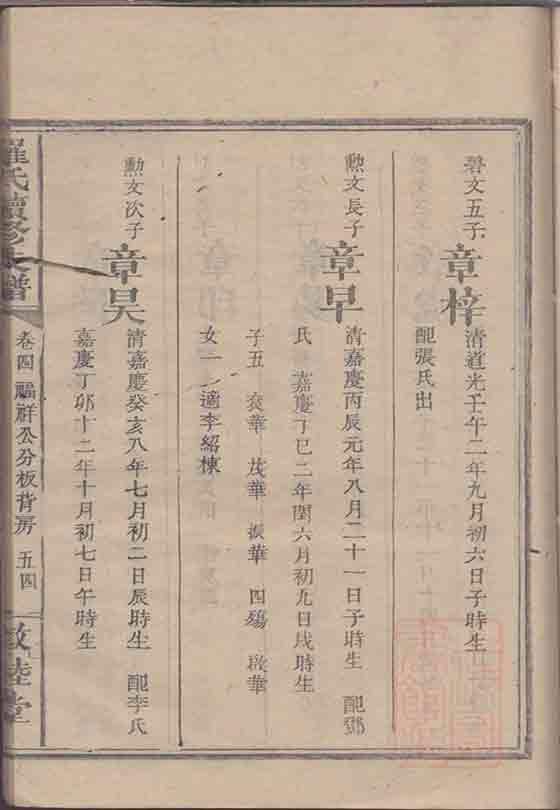 碧文五子
章梓
清道光壬午二年九月初六日子時生
配張氏出
勲文長子
章早
清嘉慶丙辰元年八月二十一日子時生 配鄧
氏 嘉慶丁巳二年閏六月初九日戌時生
子五 榮華 茂華 振華 四殤 啟華
女一 適李紹棟
勲文次子
章昊
清嘉慶癸亥八年七月初二日辰時生 配李氏
嘉慶丁卯十二年十月初七日午時生
羅氏續修支譜
卷四 福祥公分板背房 五四
敦睦堂